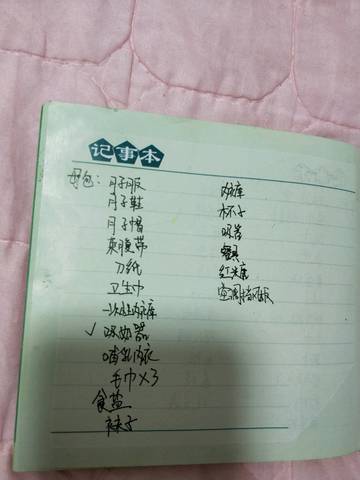 记事本
母包：月子服
月子鞋
月子帽
束腹带
刀纸
卫生巾
一次性内裤
✓吸奶器
哺乳内衣
毛巾×3
食盐
袜子
内裤
杯子
吸管
餐具
红米店
空调挡风板